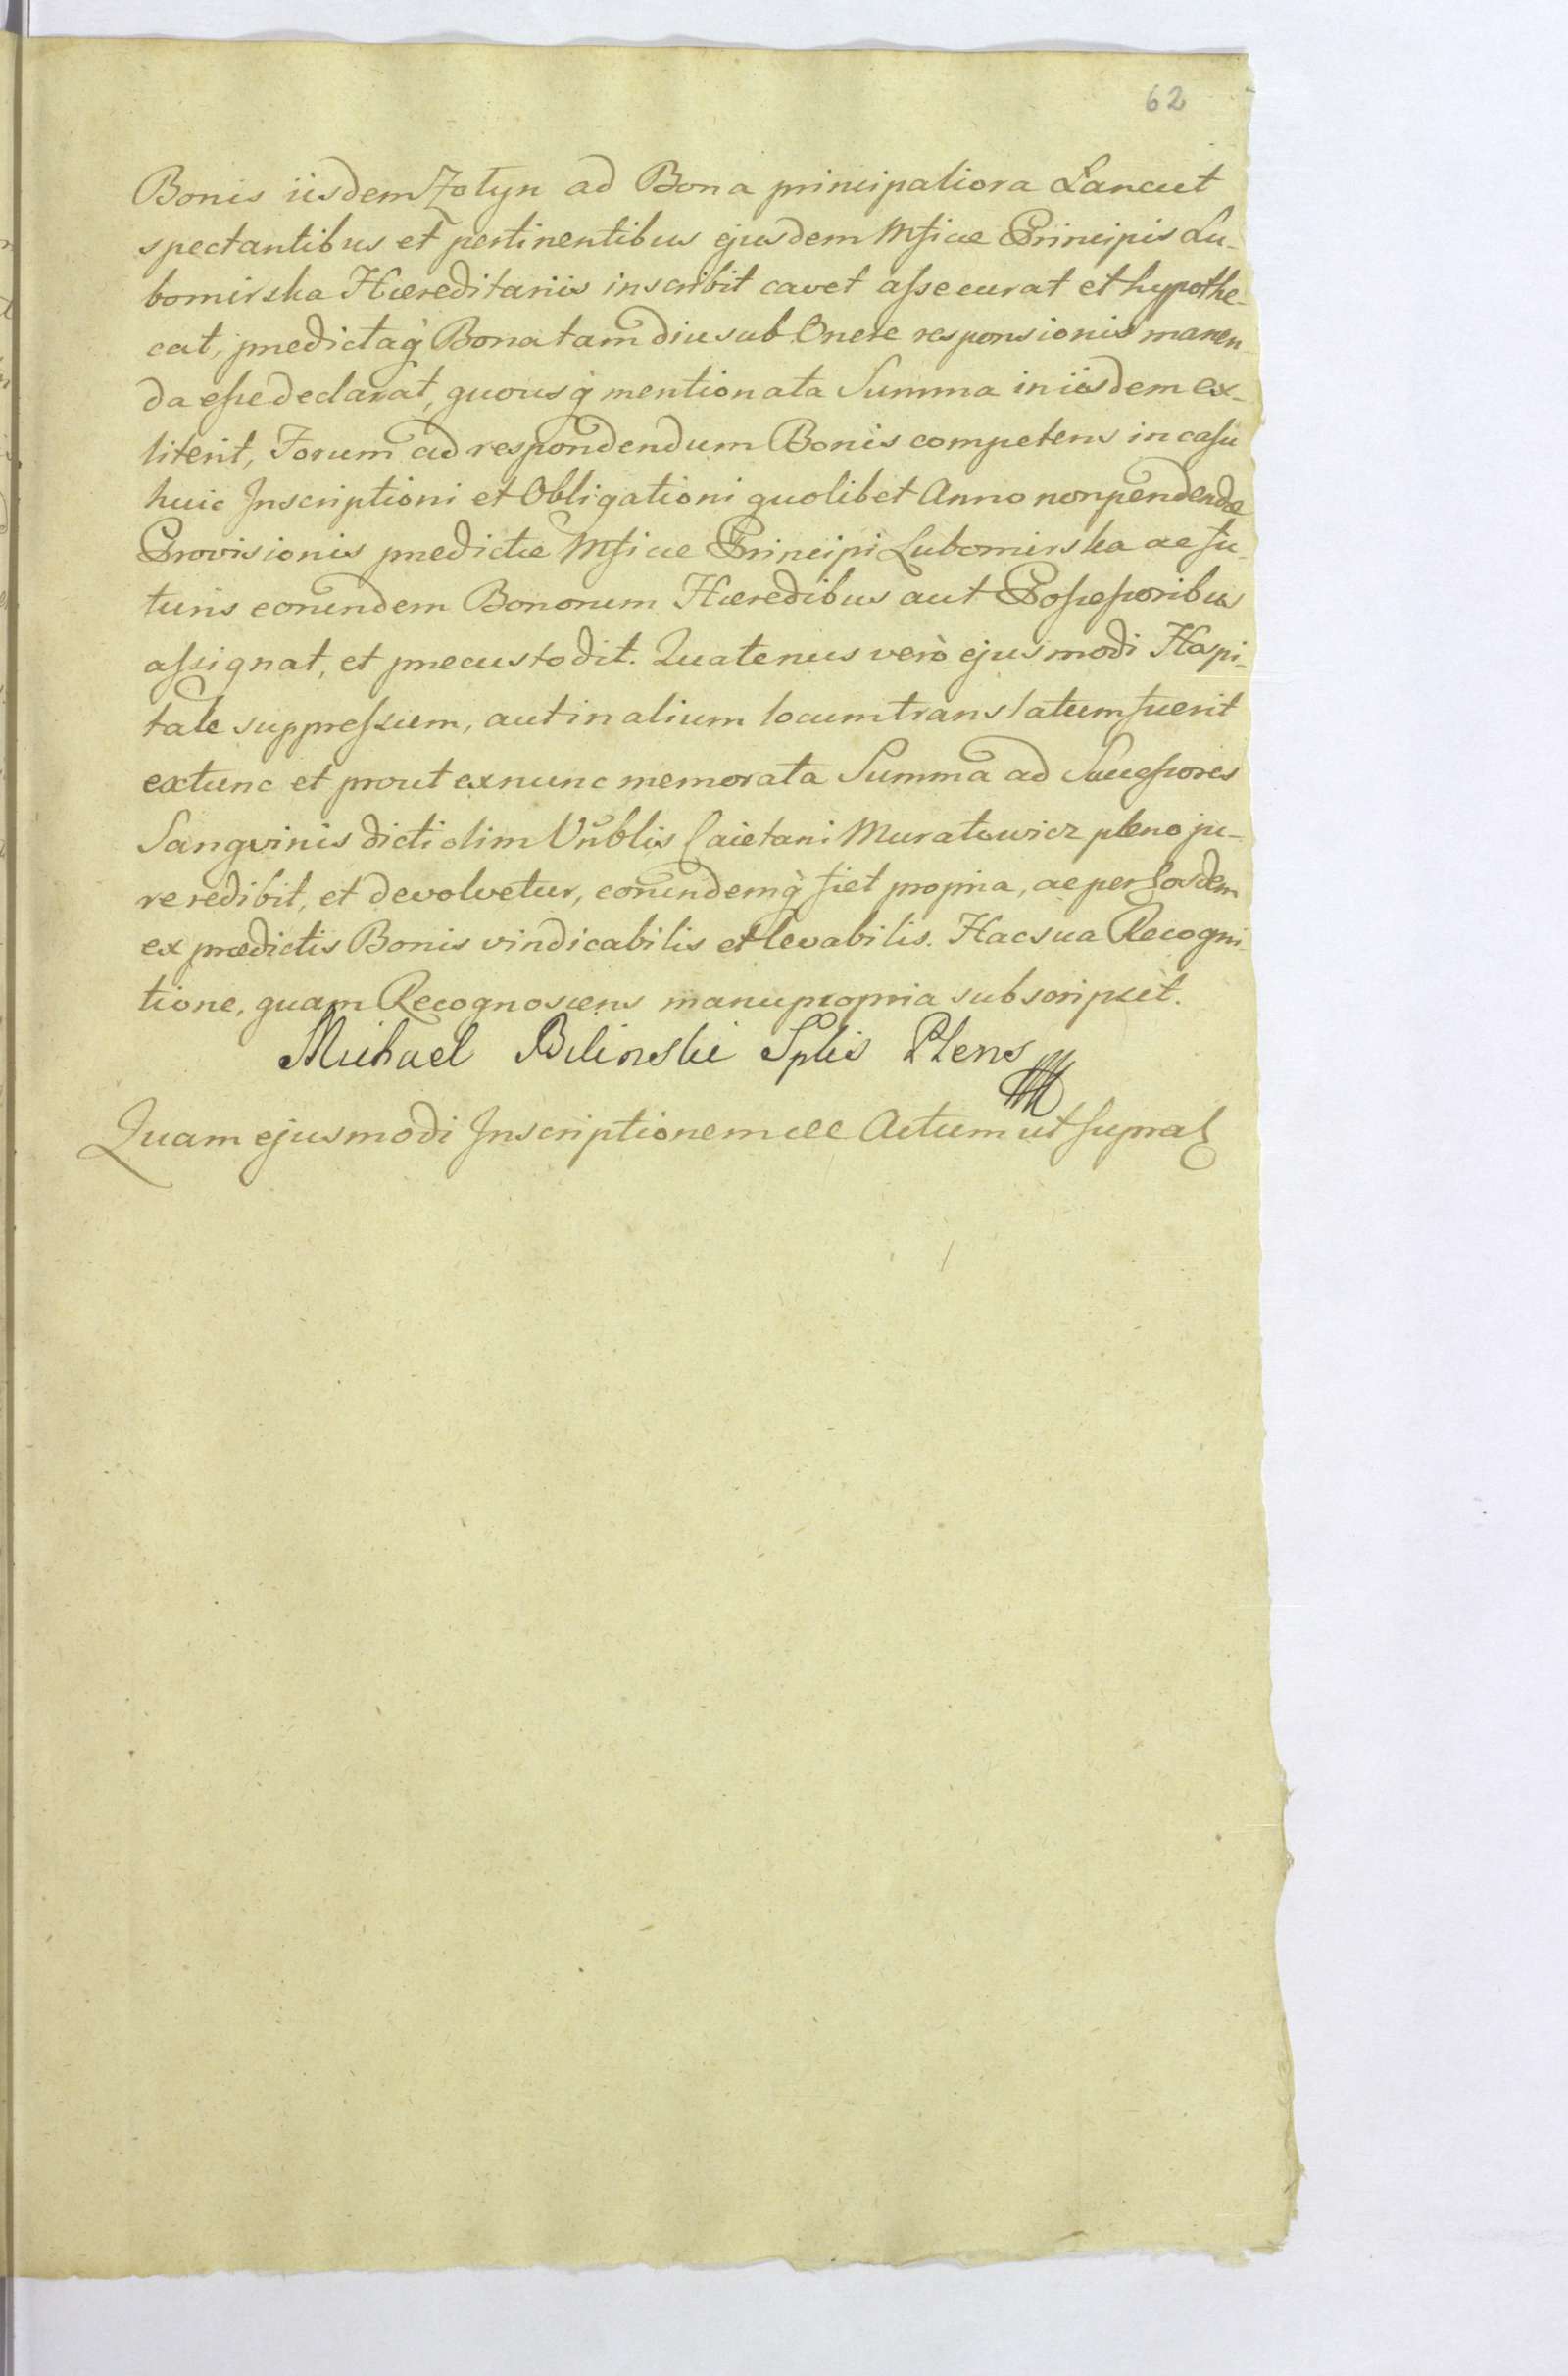 62
Bonis iisdem Zołyn ad Bona principaliora Lancut
spectantibus et pertinentibus ejusdem Mficae Principis Lu-
bomirska Haereditariis inscribit cavet assecurat et hypothe-
cat, praedictaq̀ Bona tam diu sub Onere responsionis manen-
da esse declarat, quousq̀ mentionata Summa in iisdem ex-
titerit, Forum ad respondendum Bonis competens in casu
huic Inscriptioni et Obligationi quolibet Anno non pendendae
Provisionis praedictae Mficae Principi Lubomirska ac fu-
turis eorundem Bonorum Haeredibus aut Possessoribus
assignat, et praecustodit. Quatenus verò ejusmodi Hospi-
tale suppressum, aut in alium locum translatum fuerit
extunc et prout exnunc memorata Summa ad Successores
Sangvinis dicti olim Unblis Caietani Muratowicz pleno ju-
re redibit, et devolvetur, eorundemq̀ fiet propria, ac per Eosdem
ex praedictis Bonis vindicabilis et levabilis. Hac sua Recogni-
tione, quam Recognoscens manu propria subscripsit.
Michael Bilinski Splis Plens
Quam ejusmodi Inscriptionem etc Actum ut supra